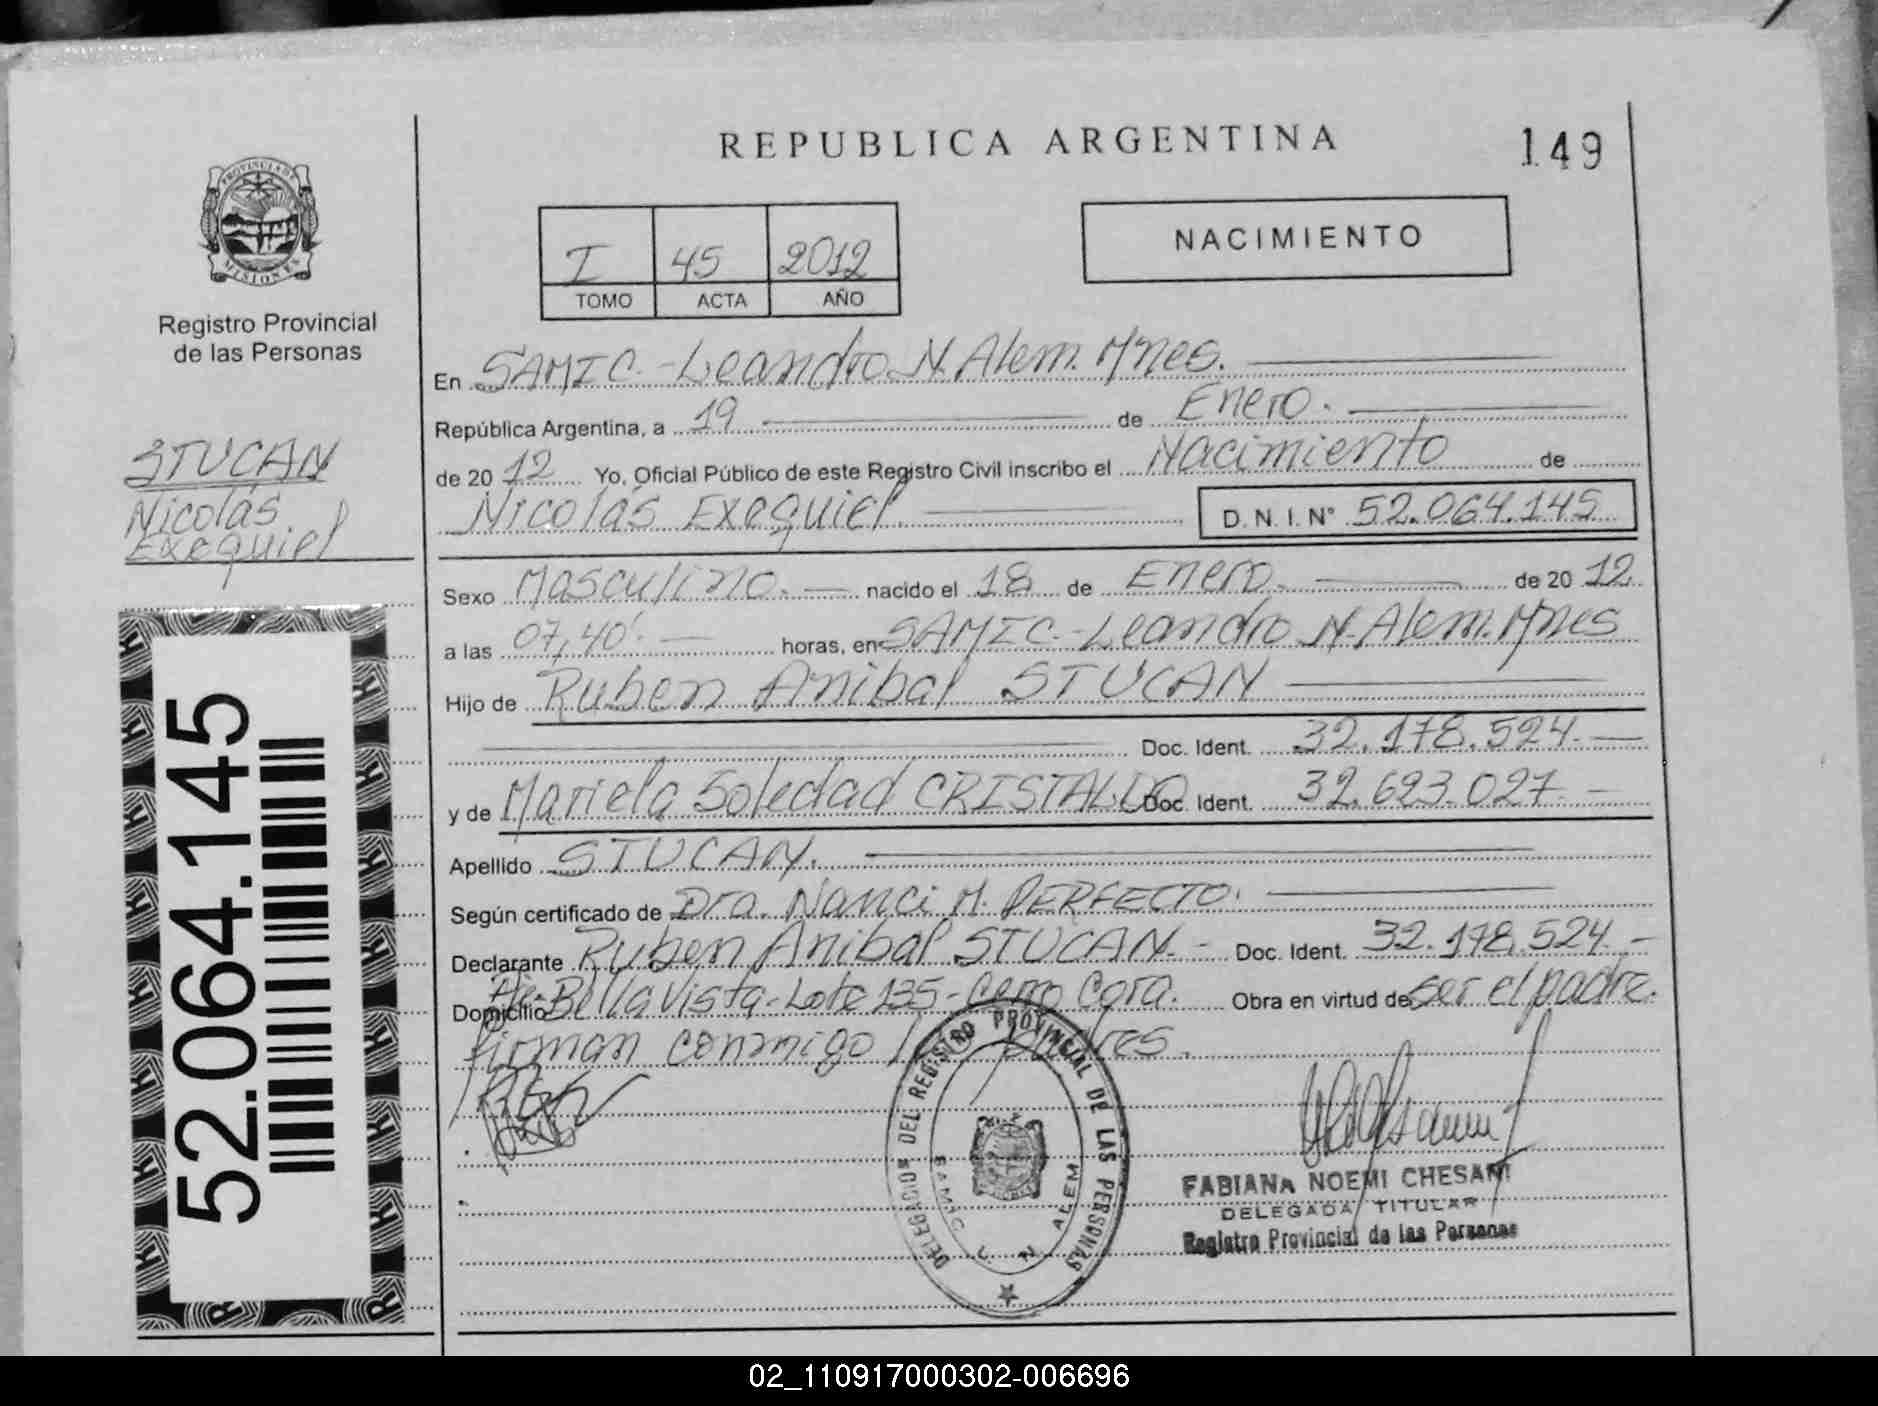 REPUBLICA ARGENTINA
149
PROVINCIA DE MISIONES
Registro Provincial
de las Personas
I 45 2012
TOMO ACTA AÑO
NACIMIENTO
STUCAN
Nicolás
Exequiel
52.064.145
En SAMIC.-Leandro N. Alem. Mnes.
República Argentina, a 19 de Enero.
de 2012 Yo, Oficial Público de este Registro Civil inscribo el Nacimiento de
Nicolás Exequiel. D.N.I.N° 52.064.145
Sexo Masculino. nacido el 18 de Enero. de 2012
a las 07,40'. horas, en SAMIC.-Leandro N. Alem. Mnes
Hijo de Ruben Anibal STUCAN
Doc. Ident. 32.178.524.
y de Mariela Soledad CRISTALDO Doc. Ident. 32.693.027.
Apellido STUCAN.
Según certificado de Dra. Nanci M. PERFECTO.
Declarante Ruben Anibal STUCAN - Doc. Ident. 32.178.524.
Domicilio Bella Vista-Lote 135-Cerro Cora. Obra en virtud de ser el padre.
Firman conmigo los padres.
DELEGACION DEL REGISTRO PROVINCIAL DE LAS PERSONAS
SAMIC. L. N. ALEM
FABIANA NOEMI CHESANI
DELEGADA TITULAR
Registro Provincial de las Personas
02_110917000302-006696